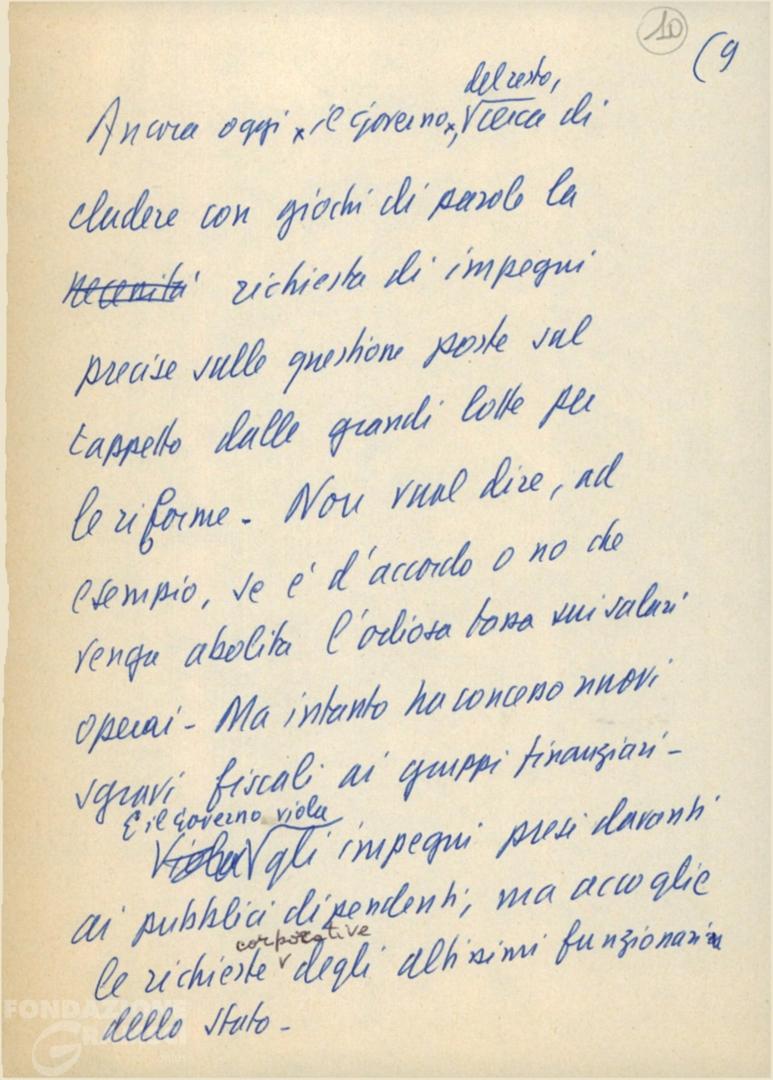 10
(9
del resto,
Ancora oggi x il Governo x, √ cerca di
eludere con giochi di parole la
necessità richiesta di impegni
precise sulle questione poste sul
tappetto dalle grandi lotte per
le riforme - Non vuol dire, ad
esempio, se è d'accordo o no che
venga abolita l'odiosa tassa sui salari
operai - Ma intanto ha concesso nuovi
sgravi fiscali ai gruppi finanziari -
E il Governo viola
Viola √ gli impegni presi davanti
ai pubblici dipendenti, ma accoglie
corporative
le richieste √ degli altissimi funzionari
dello Stato -
FONDAZIONE
GRAMSCI